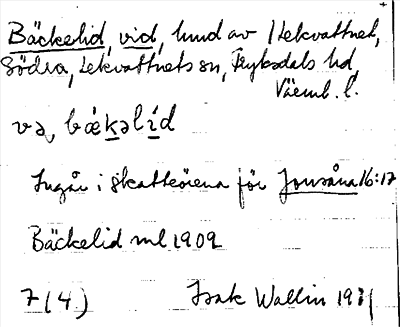 Bäckelid, vid, hmd av 1 Lekvattnet,
Södra, Lekvattnets sn, Fryksdals hd,
Värml. l.
və, bǽkəlíd
Ingår i skattköiena för Jonsåna 16:17
Bäckelid ml 1909
7(4) Isak Wallin 1931